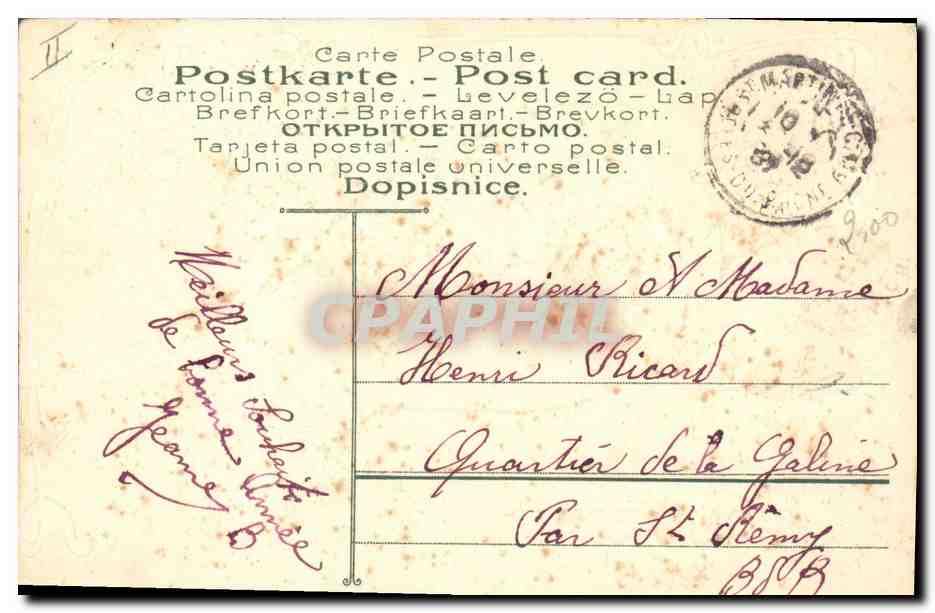 II
Carte Postale.
Postkarte. - Post card.
Cartolina postale. - Levelező - Lap
Brefkort. - Briefkaart. - Brevkort.
ОТКРЫТОЕ ПИСЬМО.
Tarjeta postal. - Carto postal.
Union postale universelle.
Dopisnice.
ST MARTIN
2,00
Monsieur et Madame
Henri Ricard
Quartier de la Galine
Par St Rémy
B d R
Meilleurs Souhaits
de bonne Année
Jeanne B
CPAPHIL